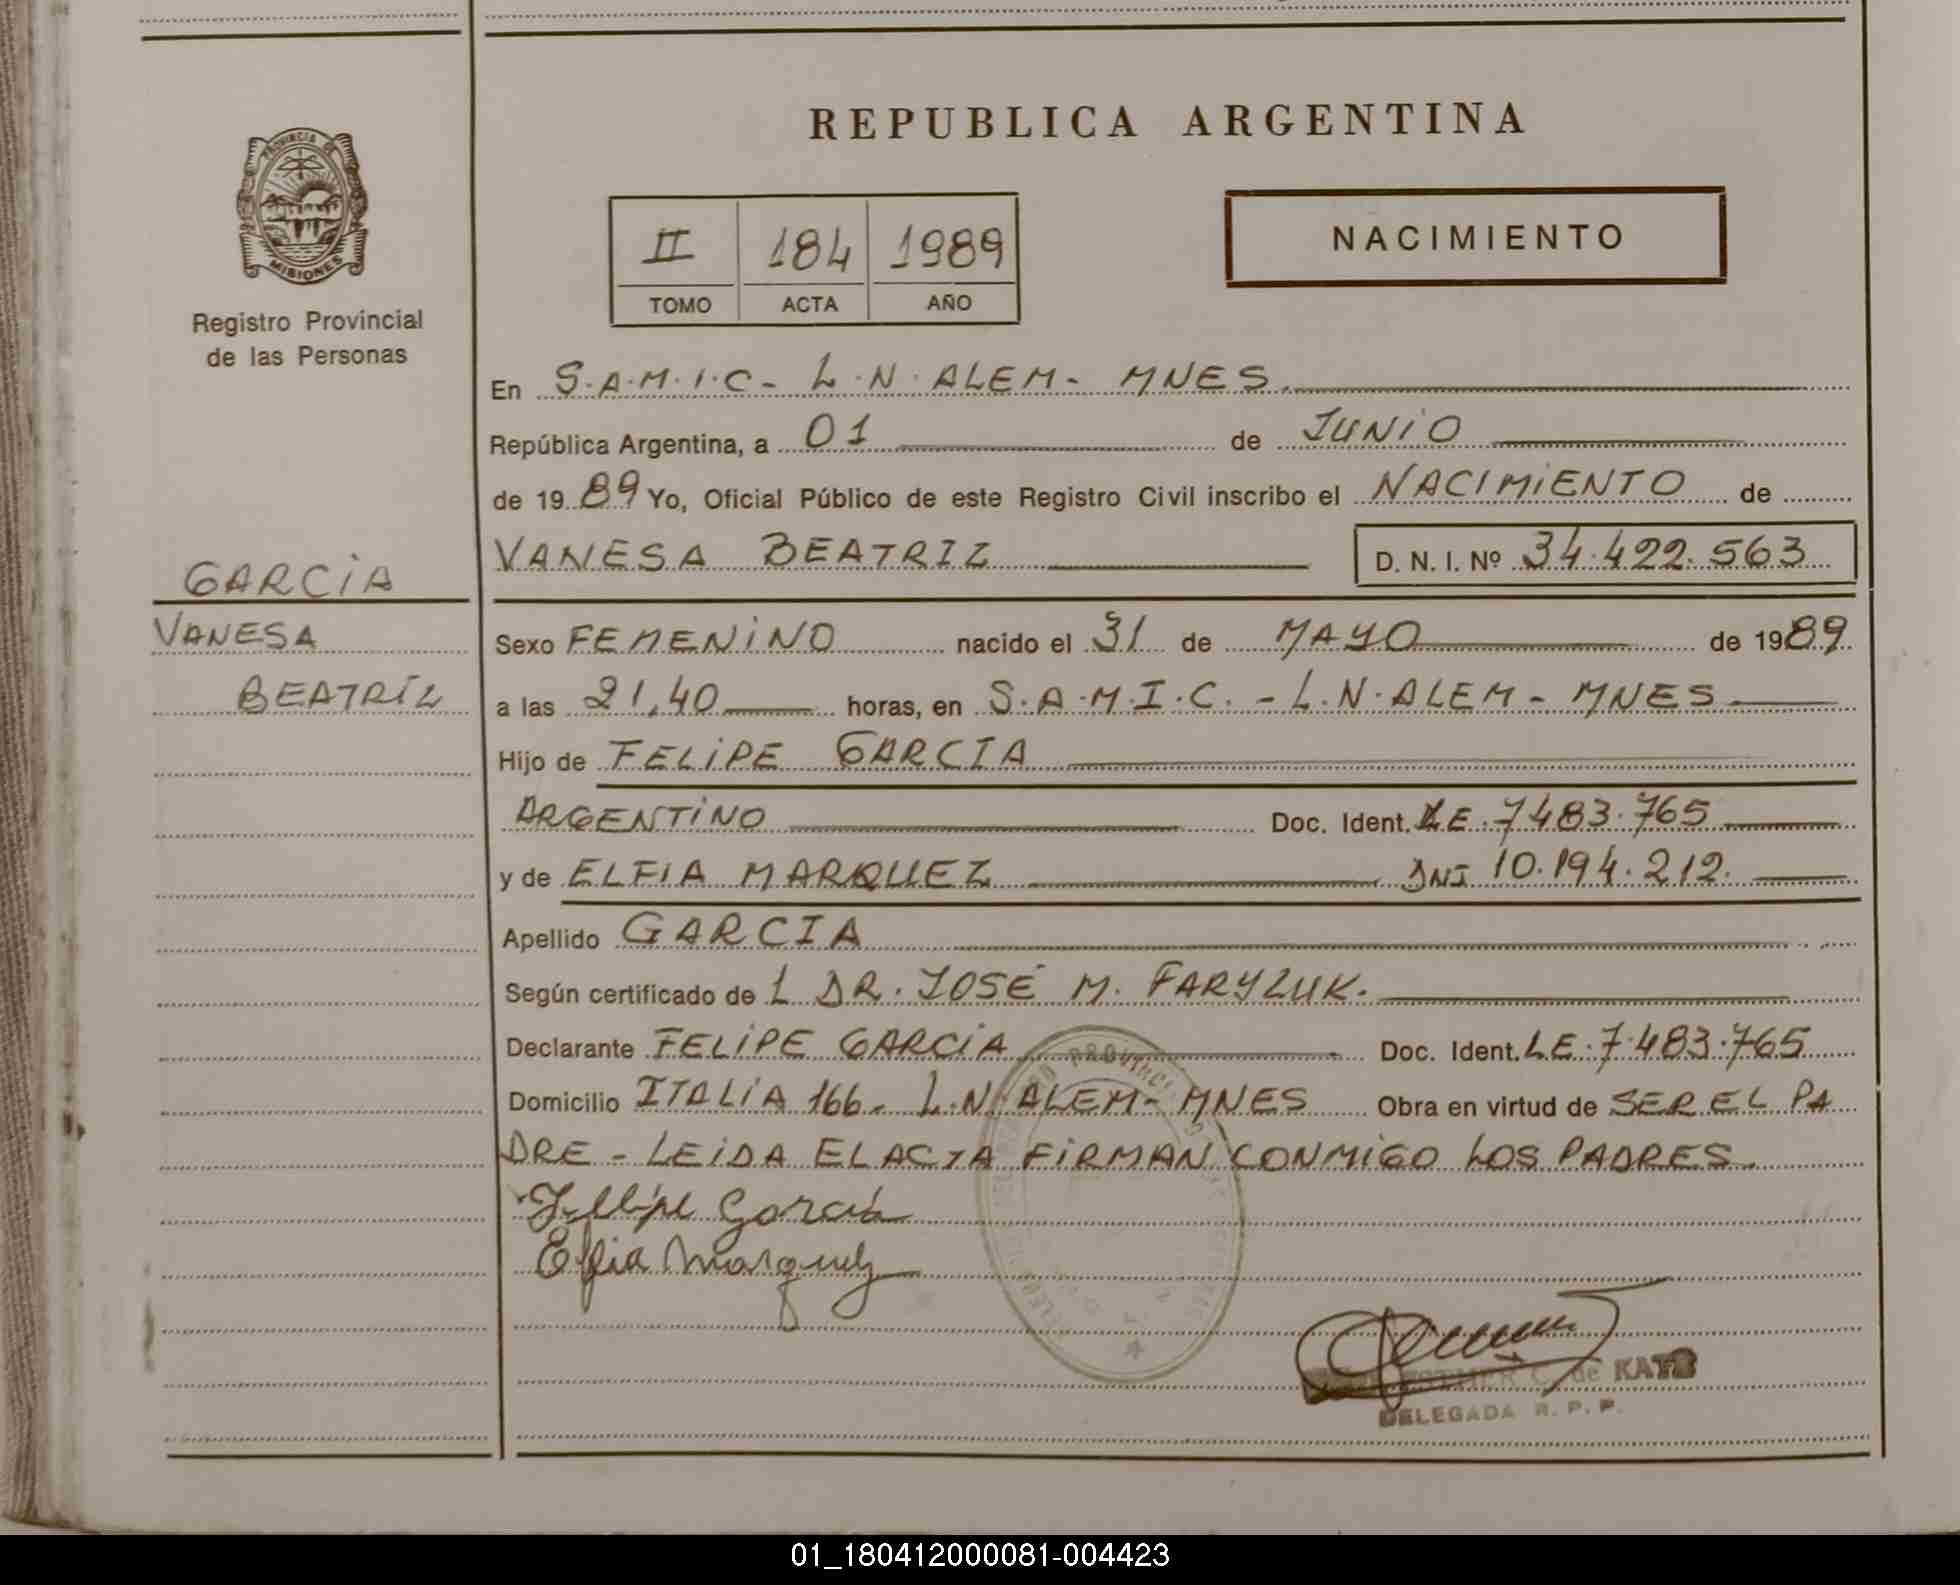 REPUBLICA ARGENTINA
PROVINCIA DE
MISIONES
Registro Provincial
de las Personas
II 184 1989
TOMO ACTA AÑO
NACIMIENTO
En S.A.M.I.C- L.N.ALEM- MNES.
República Argentina, a 01 de JUNIO
de 1989 Yo, Oficial Público de este Registro Civil inscribo el NACIMIENTO de
VANESA BEATRIZ D. N. I. Nº 34.422.563
GARCIA
VANESA
BEATRIZ
Sexo FEMENINO nacido el 31 de MAYO de 1989
a las 21,40 horas, en S.A.M.I.C. - L.N.ALEM - MNES
Hijo de FELIPE GARCIA
ARGENTINO Doc. Ident. LE.7483.765
y de ELFIA MARQUEZ DNI 10.194.212.
Apellido GARCIA
Según certificado de L DR. JOSÉ M. FARYLUK.
Declarante FELIPE GARCIA Doc. Ident. LE.7.483.765
Domicilio ITALIA 166. L.N ALEM- MNES Obra en virtud de SER EL PA
DRE - LEIDA EL ACTA FIRMAN CONMIGO LOS PADRES.
Fellipe Garcia
Elfia Marquez
ESTHER C. de KATZ
DELEGADA R. P. P.
01_180412000081-004423